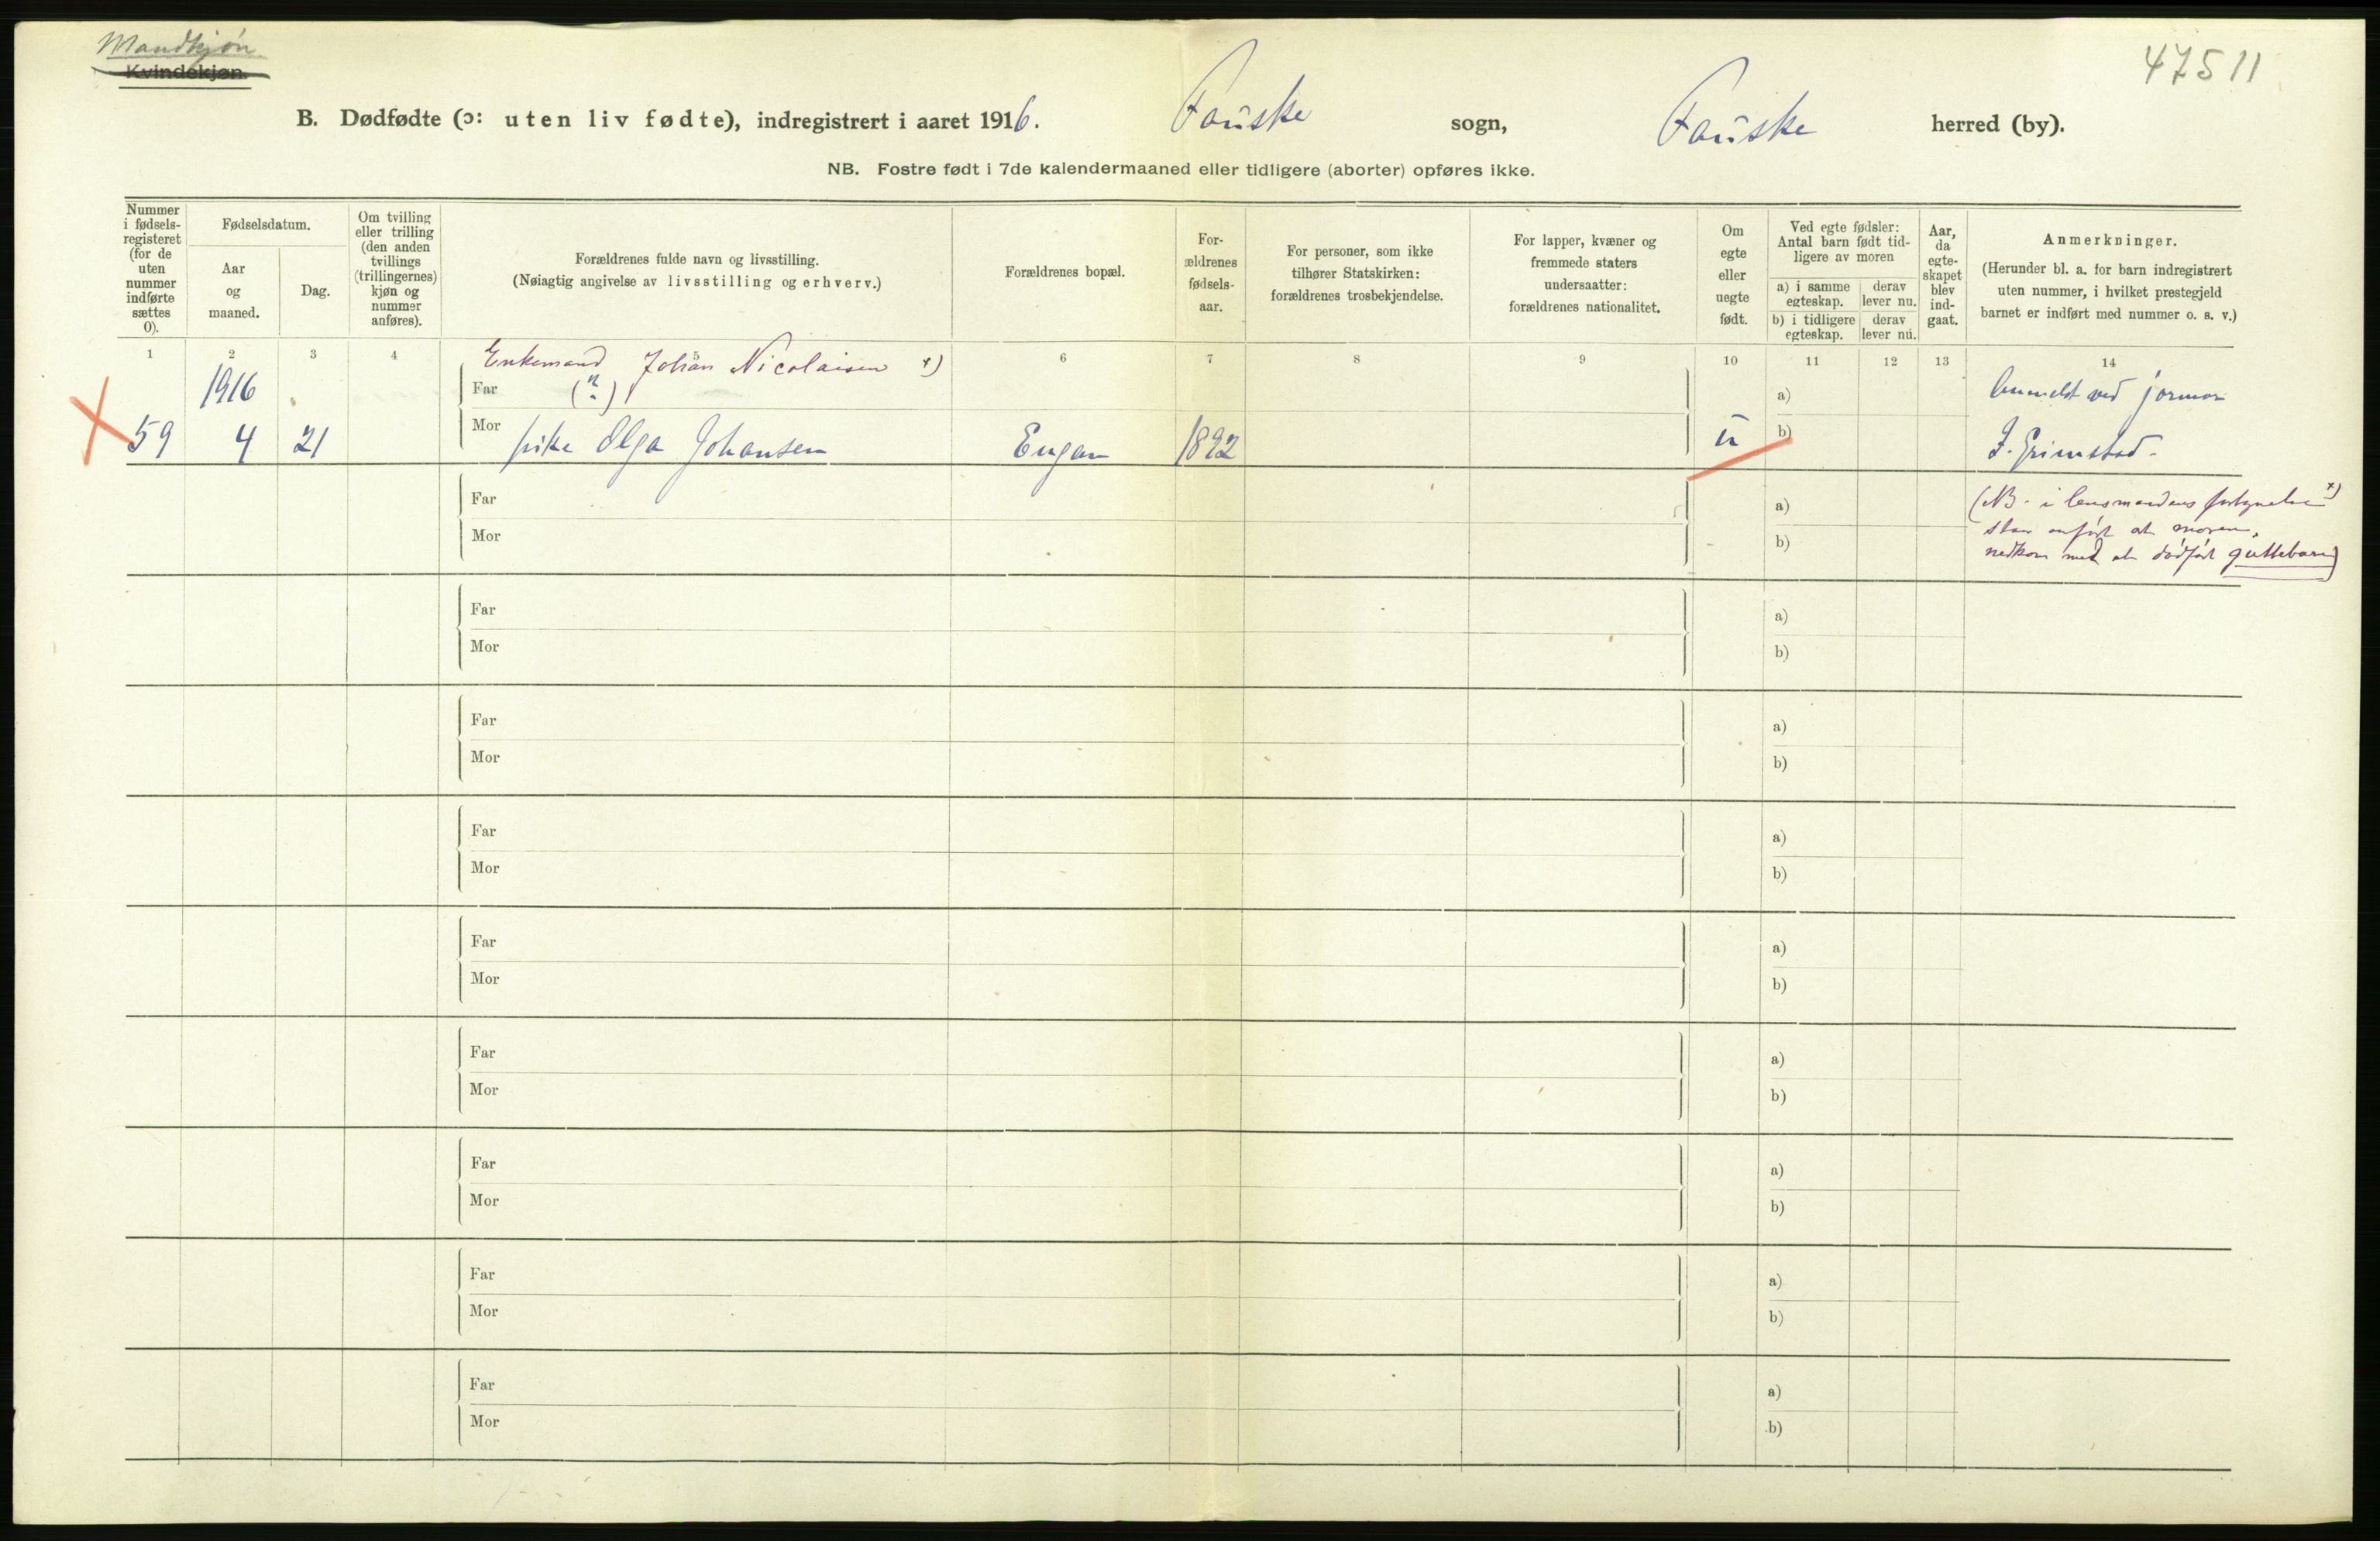 Mandkjøn
Kvindekjøn.
47511
B. Dødfødte (ɔ: uten liv fødte), indregistrert i aaret 1916. Fauske sogn, Fauske herred (by).
NB. Fostre født i 7de kalendermaaned eller tidligere (aborter) opføres ikke.
Nummer i fødsels-registeret (for de uten nummer indførte sættes 0).
Fødselsdatum.
Aar og maaned.
Dag.
Om tvilling eller trilling (den anden tvillings (trillingernes) kjøn og nummer anføres).
Forældrenes fulde navn og livsstilling.
(Nøiagtig angivelse av livsstilling og erhverv.)
Forældrenes bopæl.
For-ældrenes fødsels-aar.
For personer, som ikke tilhører Statskirken: forældrenes trosbekjendelse.
For lapper, kvæner og fremmede staters undersaatter: forældrenes nationalitet.
Om egte eller uegte født.
Ved egte fødsler: Antal barn født tid-ligere av moren
a) i samme egteskap. derav lever nu.
b) i tidligere egteskap. derav lever nu.
Aar, da egte-skapet blev ind-gaat.
Anmerkninger.
(Herunder bl. a. for barn indregistrert uten nummer, i hvilket prestegjeld barnet er indført med nummer o. s. v.)
1 2 3 4 5 6 7 8 9 10 11 12 13 14
Enkemand Johan Nicolaisen x)
1916 Far (?) a) Anmeldt ved jormor
59 4 21 Mor pike Olga Johansen Engan 1892 u b) J. Grimstad.
Far a) (NB. i lensmandens x)
staar anført at moren
Mor b) nedkom med et dødfødt guttebarn)
Far a)
Mor b)
Far a)
Mor b)
Far a)
Mor b)
Far a)
Mor b)
Far a)
Mor b)
Far a)
Mor b)
Far a)
Mor b)
Far a)
Mor b)